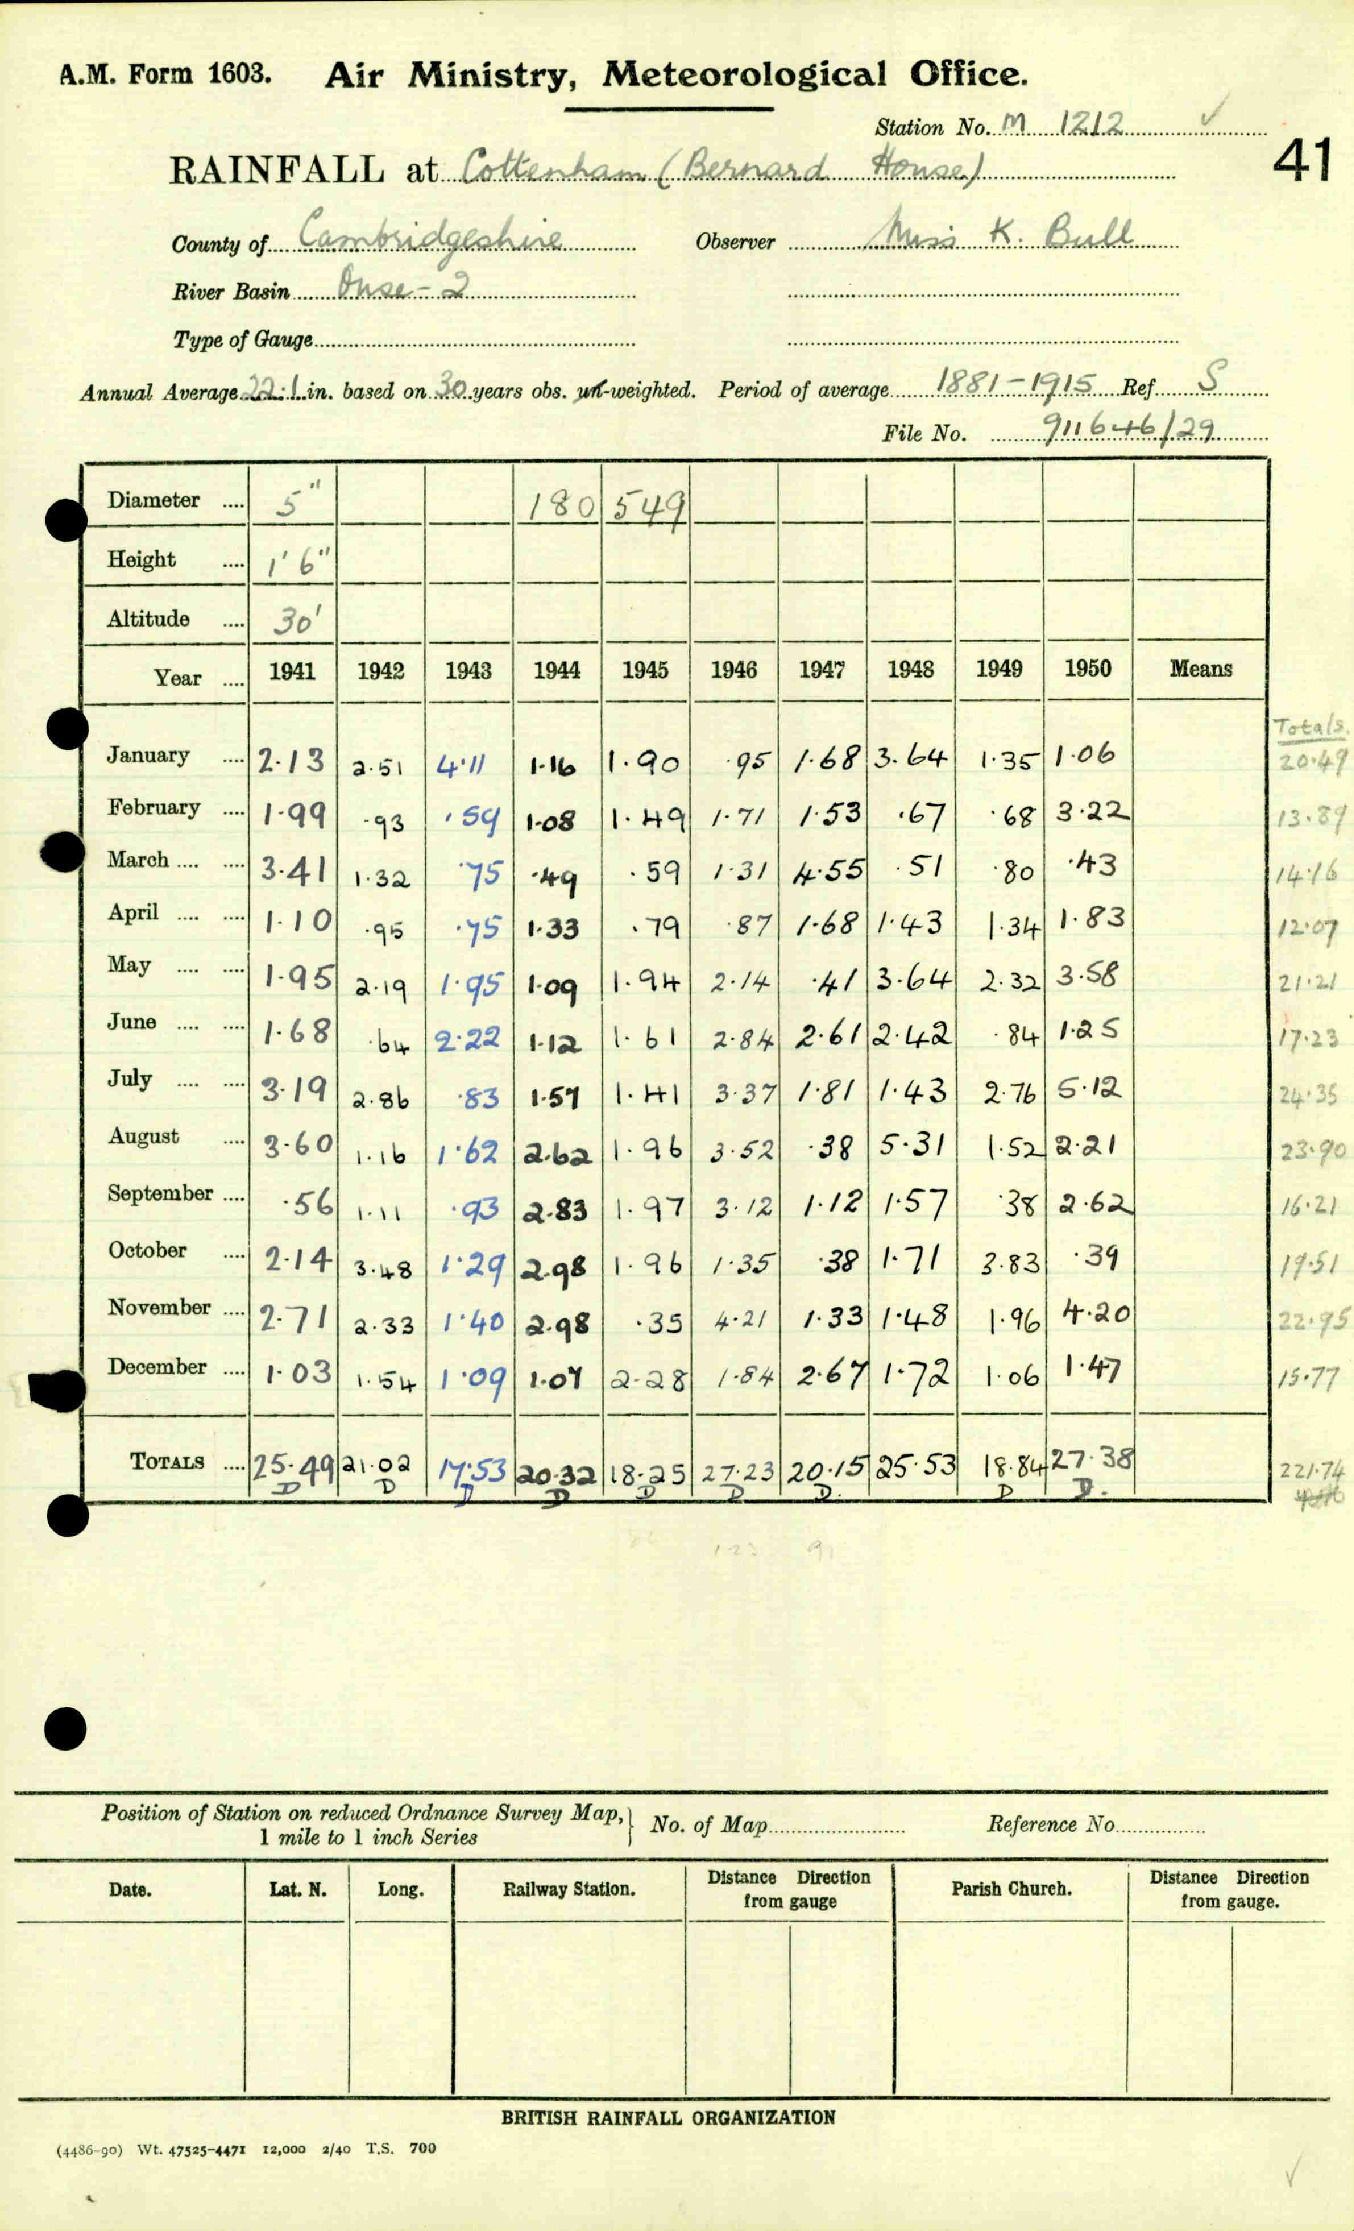 A.M. Form 1603. Air Ministry, Meteorological Office.
Station No. M 1212 ✓
41
RAINFALL at Cottenham (Bernard House)
County of Cambridgeshire Observer Miss K. Bull
River Basin Ouse - 2
Type of Gauge
Annual Average 22.1 in. based on 30 years obs. un-weighted. Period of average 1881-1915 Ref S
File No. 911646/29
Diameter .... 5" 180 549
Height .... 1' 6"
Altitude .... 30'
Year .... 1941 1942 1943 1944 1945 1946 1947 1948 1949 1950 Means
Totals.
January .... 2.13 2.51 4.11 1.16 1.90 .95 1.68 3.64 1.35 1.06 20.49
February .... 1.99 .93 .59 1.08 1.49 1.71 1.53 .67 .68 3.22 13.89
March .... .... 3.41 1.32 .75 .49 .59 1.31 4.55 .51 .80 .43 14.16
April .... .... 1.10 .95 .75 1.33 .79 .87 1.68 1.43 1.34 1.83 12.07
May .... .... 1.95 2.19 1.95 1.09 1.94 2.14 .41 3.64 2.32 3.58 21.21
June .... .... 1.68 .64 2.22 1.12 1.61 2.84 2.61 2.42 .84 1.25 17.23
July .... .... 3.19 2.86 .83 1.57 1.41 3.37 1.81 1.43 2.76 5.12 24.35
August .... 3.60 1.16 1.62 2.62 1.96 3.52 .38 5.31 1.52 2.21 23.90
September .... .56 1.11 .93 2.83 1.97 3.12 1.12 1.57 .38 2.62 16.21
October .... 2.14 3.48 1.29 2.98 1.96 1.35 .38 1.71 3.83 .39 19.51
November .... 2.71 2.33 1.40 2.98 .35 4.21 1.33 1.48 1.96 4.20 22.95
December .... 1.03 1.54 1.09 1.07 2.28 1.84 2.67 1.72 1.06 1.47 15.77
TOTALS .... 25.49 21.02 17.53 20.32 18.25 27.23 20.15 25.53 18.84 27.38 221.74
D D D D D D D. D D.
1.23 91
Position of Station on reduced Ordnance Survey Map, } No. of Map Reference No
1 mile to 1 inch Series
Date. Lat. N. Long. Railway Station. Distance Direction from gauge Parish Church. Distance Direction from gauge.
BRITISH RAINFALL ORGANIZATION
(4486-90) Wt. 47525-4471 12,000 2/40 T.S. 700
✓